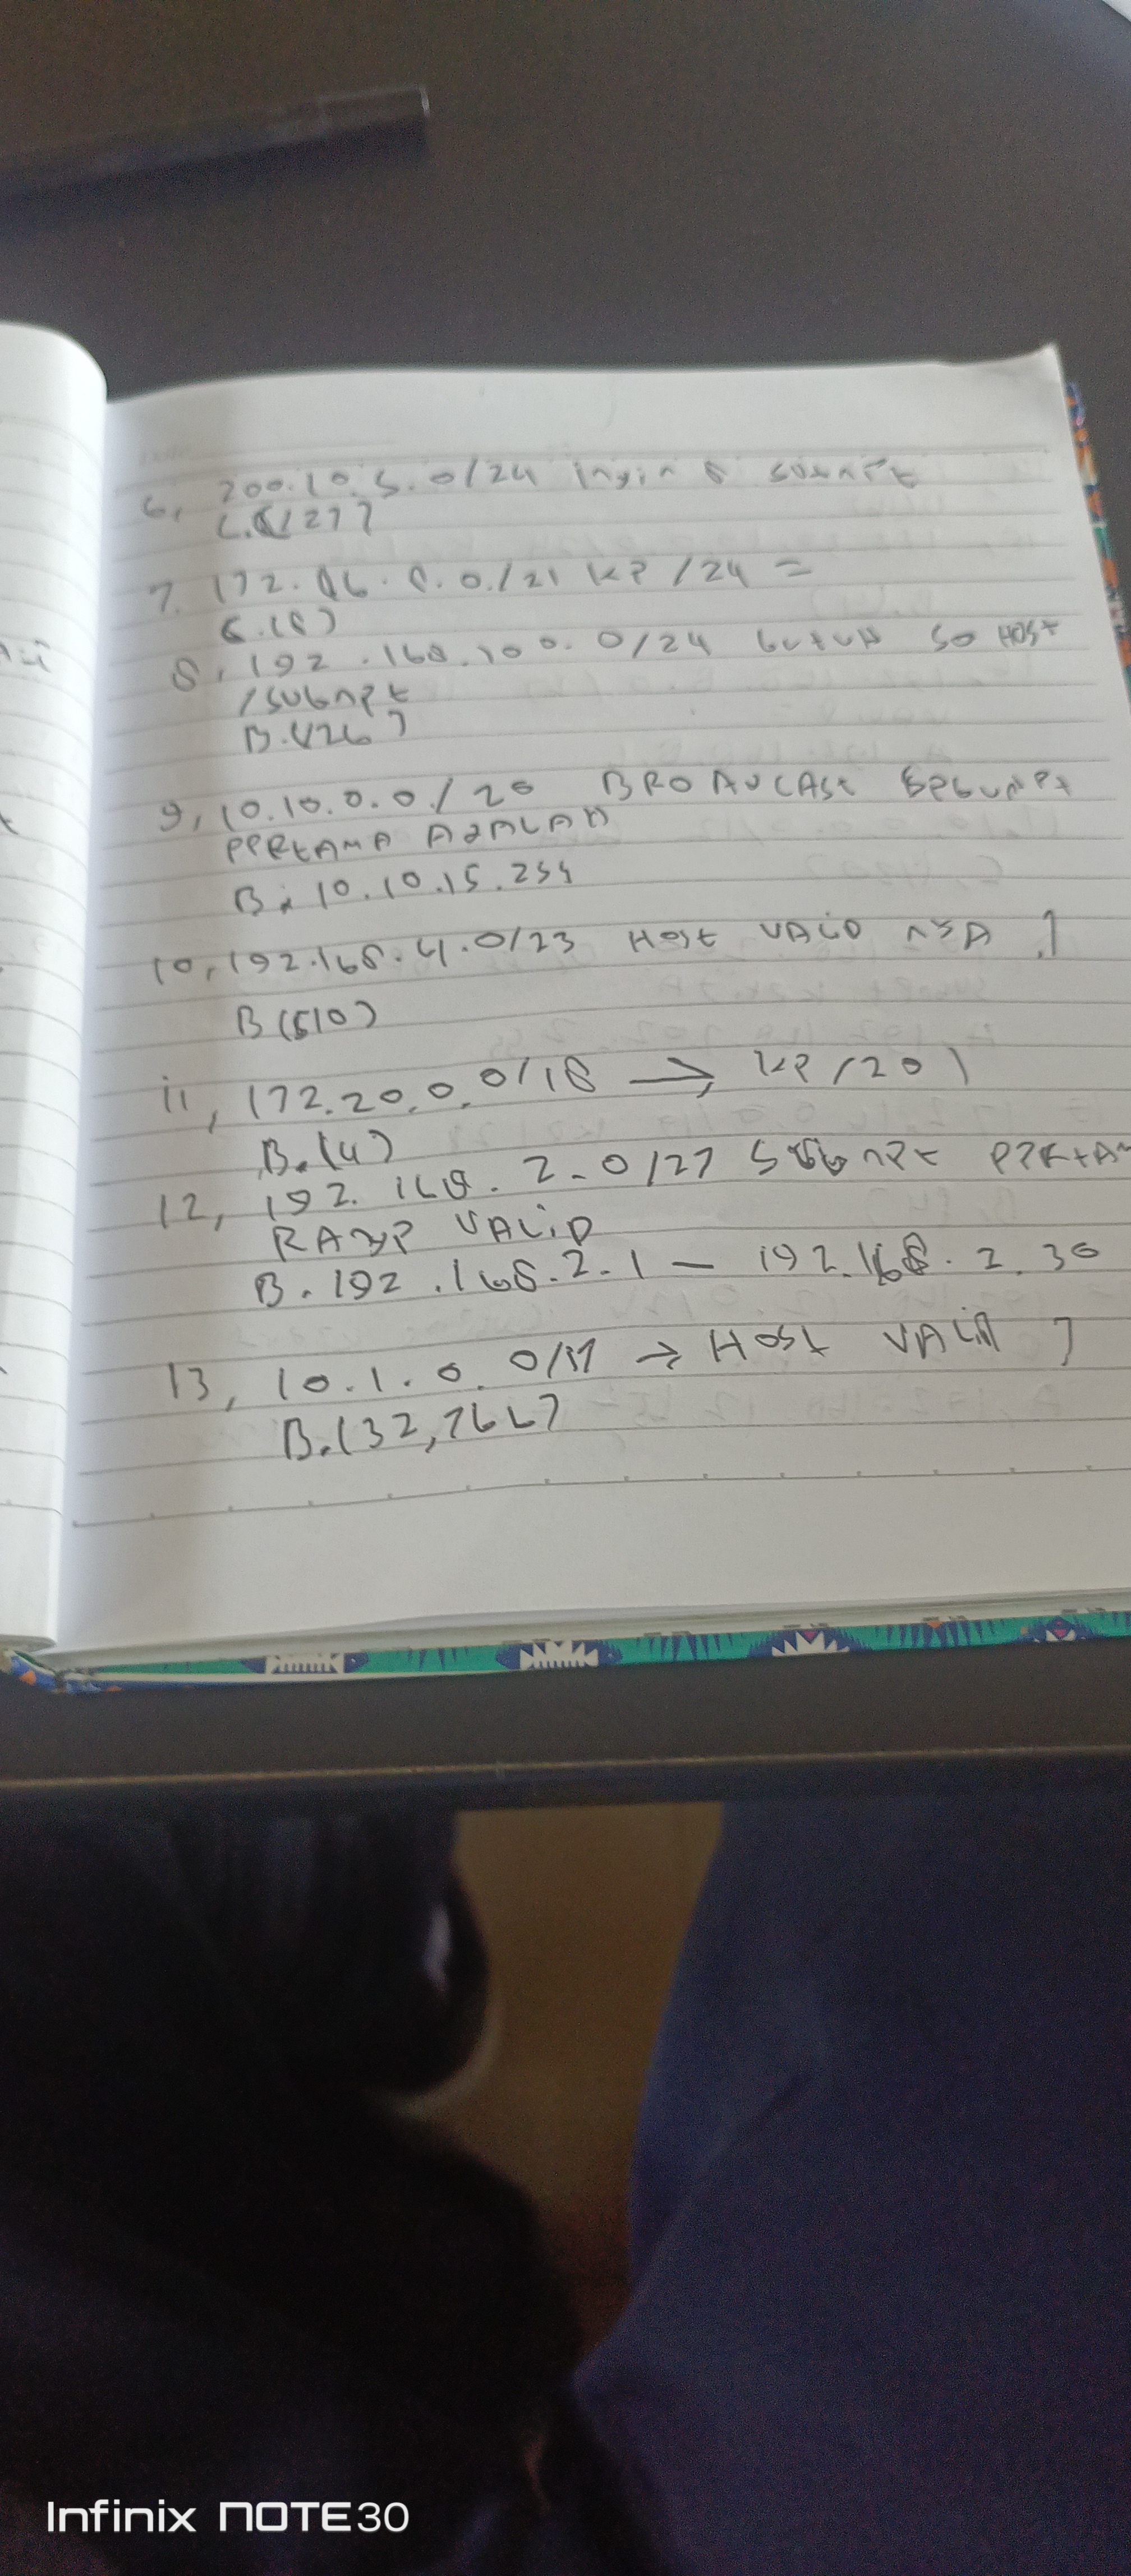 6, 200.10.5.0/24 ingin 8 subnet
C.(/27)
7. 172.16.8.0/21 ke /24 =
C.(8)
8, 192.168.100.0/24 butuh 50 HOSt
/subnet
B.(/26)
9, 10.10.0.0/20 BROADCASt SebuNet
PeRtAMA ADALAH
B. 10.10.15.255
10, 192.168.4.0/23 HOSt VALiD NYA ?
B (510)
11, 172.20.0.0/18 → ke /20 )
B.(4)
12, 192.168.2.0/27 Subnet PeRtAM
RANGe VALiD
B. 192.168.2.1 - 192.168.2.30
13, 10.1.0.0/17 → HOSt VALiD ?
B.(32,766)
Infinix NOTE30